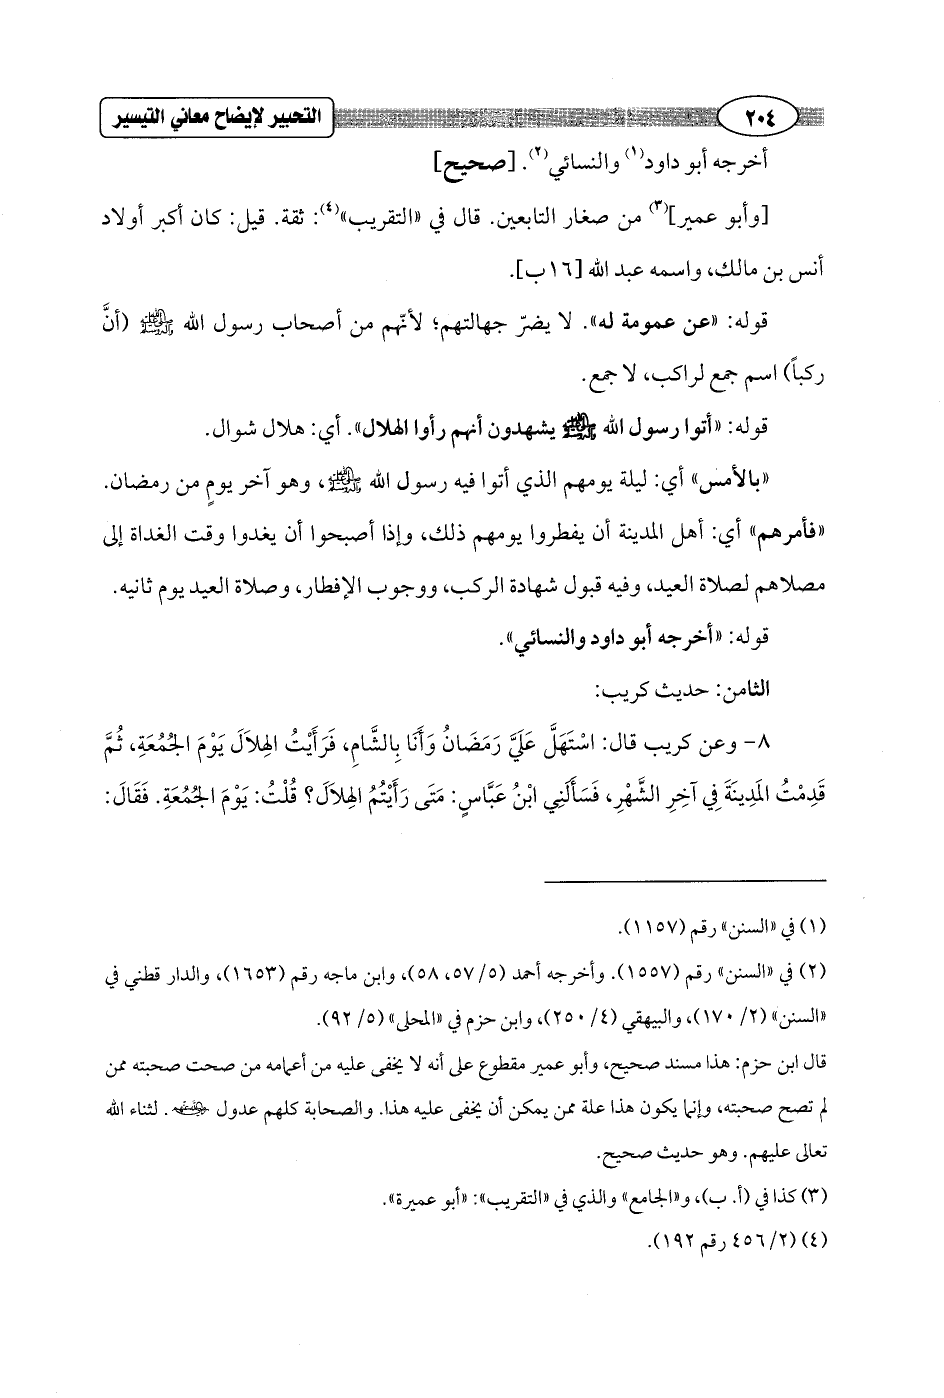 ٢٠٤ التحبير لإيضاح معاني التيسير
أخرجه أبو داود(١) والنسائي(٢). [صحيح]
[وأبو عمير](٣) من صغار التابعين. قال في «التقريب»(٤): ثقة. قيل: كان أكبر أولاد
أنس بن مالك، واسمه عبد الله [١٦ب].
قوله: «عن عمومة له». لا يضرّ جهالتهم؛ لأنّهم من أصحاب رسول الله ﷺ (أنَّ
ركباً) اسم جمع لراكب، لا جمع.
قوله: «أتوا رسول الله ﷺ يشهدون أنهم رأوا الهلال». أي: هلال شوال.
«بالأمس» أي: ليلة يومهم الذي أتوا فيه رسول الله ﷺ، وهو آخر يومٍ من رمضان.
«فأمرهم» أي: أهل المدينة أن يفطروا يومهم ذلك، وإذا أصبحوا أن يغدوا وقت الغداة إلى
مصلاهم لصلاة العيد، وفيه قبول شهادة الركب، ووجوب الإفطار، وصلاة العيد يوم ثانيه.
قوله: «أخرجه أبو داود والنسائي».
الثامن: حديث كريب:
٨- وعن كريب قال: اسْتَهَلَّ عَلَيَّ رَمَضَانُ وَأَنَا بِالشَّامِ، فَرَأَيْتُ الهِلاَلَ يَوْمَ الجُمُعَةِ، ثُمَّ
قَدِمْتُ المَدِينَةَ فِي آخِرِ الشَّهْرِ، فَسَأَلَنِي ابْنُ عَبَّاسٍ: مَتَى رَأَيْتُمُ الهِلاَلَ؟ قُلْتُ: يَوْمَ الجُمُعَةِ. فَقَالَ:
(١) في «السنن» رقم (١١٥٧).
(٢) في «السنن» رقم (١٥٥٧). وأخرجه أحمد (٥/ ٥٧، ٥٨)، وابن ماجه رقم (١٦٥٣)، والدار قطني في
«السنن» (٢/ ١٧٠)، والبيهقي (٤/ ٢٥٠)، وابن حزم في «المحلى» (٥/ ٩٢).
قال ابن حزم: هذا مسند صحيح، وأبو عمير مقطوع على أنه لا يخفى عليه من أعمامه من صحت صحبته ممن
لم تصح صحبته، وإنما يكون هذا علة ممن يمكن أن يخفى عليه هذا. والصحابة كلهم عدول ﷢. لثناء الله
تعالى عليهم. وهو حديث صحيح.
(٣) كذا في (أ. ب)، و«الجامع» والذي في «التقريب»: «أبو عميرة».
(٤) (٢/ ٤٥٦ رقم ١٩٢).